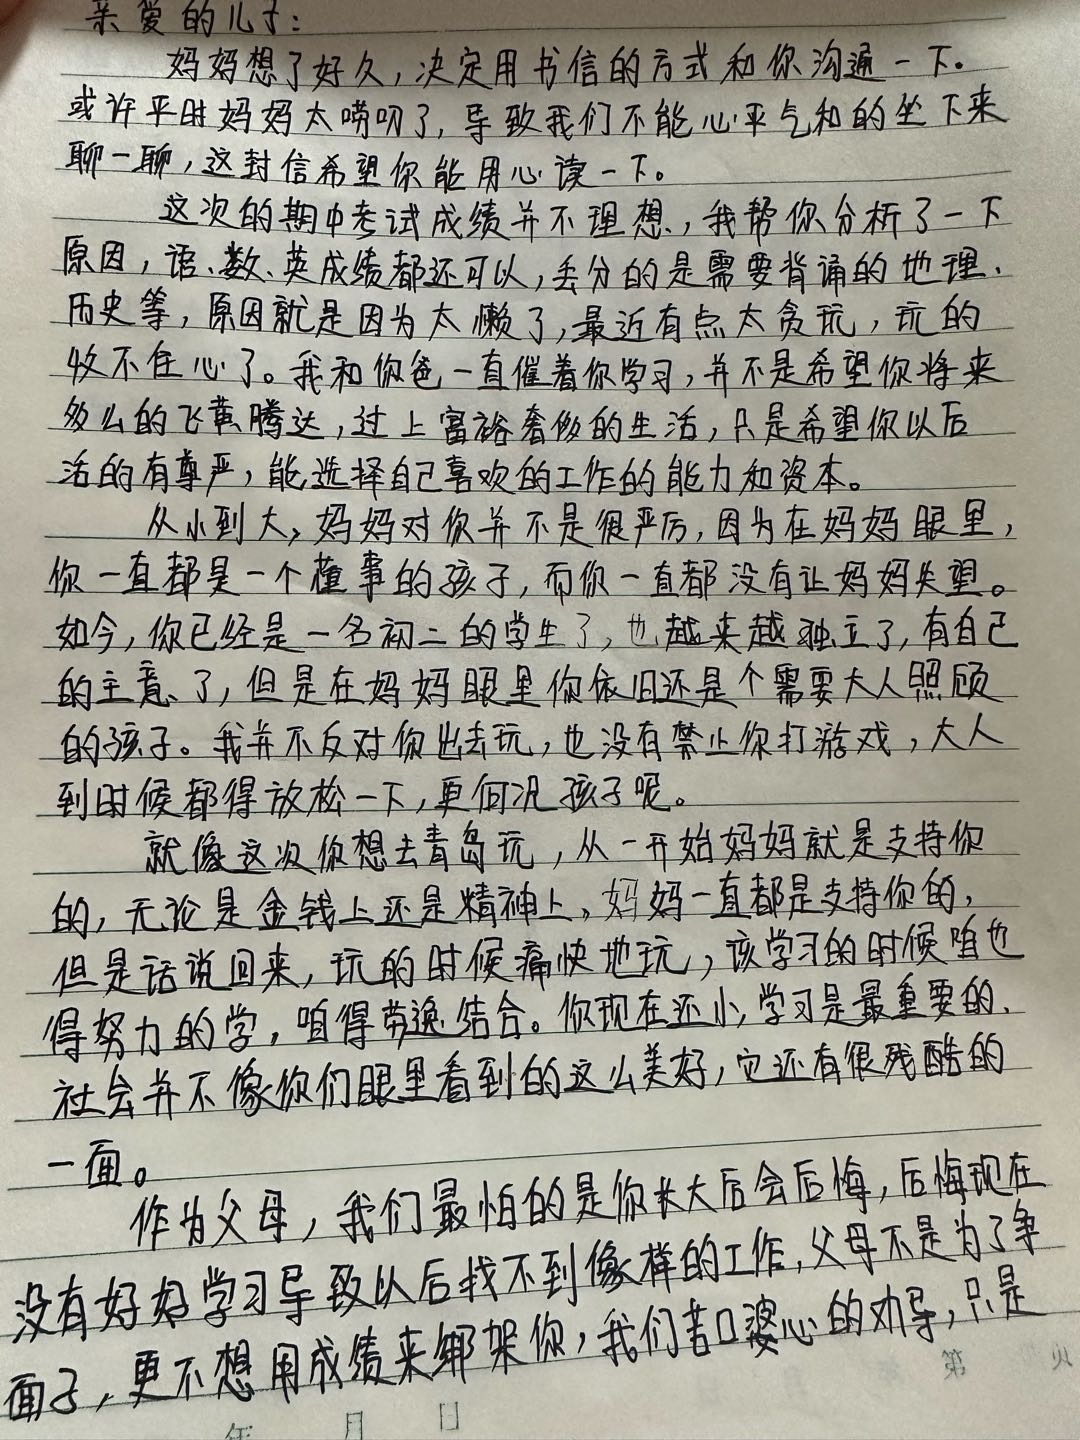 亲爱的儿子：
妈妈想了好久，决定用书信的方式和你沟通一下。
或许平时妈妈太唠叨了，导致我们不能心平气和的坐下来
聊一聊，这封信希望你能用心读一下。
这次的期中考试成绩并不理想，我帮你分析了一下
原因，语、数、英成绩都还可以，丢分的是需要背诵的地理、
历史等，原因就是因为太懒了，最近有点太贪玩，玩的
收不住心了。我和你爸一直催着你学习，并不是希望你将来
多么的飞黄腾达，过上富裕奢侈的生活，只是希望你以后
活的有尊严，能选择自己喜欢的工作的能力和资本。
从小到大，妈妈对你并不是很严厉，因为在妈妈眼里，
你一直都是一个懂事的孩子，而你一直都没有让妈妈失望。
如今，你已经是一名初二的学生了，也越来越独立了，有自己
的主意了，但是在妈妈眼里你依旧还是个需要大人照顾
的孩子。我并不反对你出去玩，也没有禁止你打游戏，大人
到时候都得放松一下，更何况孩子呢。
就像这次你想去青岛玩，从一开始妈妈就是支持你
的，无论是金钱上还是精神上，妈妈一直都是支持你的，
但是话说回来，玩的时候痛快地玩，该学习的时候咱也
得努力的学，咱得劳逸结合。你现在还小，学习是最重要的、
社会并不像你们眼里看到的这么美好，它还有很残酷的
一面。
作为父母，我们最怕的是你长大后会后悔，后悔现在
没有好好学习导致以后找不到像样的工作，父母不是为了争
面子，更不想用成绩来绑架你，我们苦口婆心的劝导，只是
年 月 日